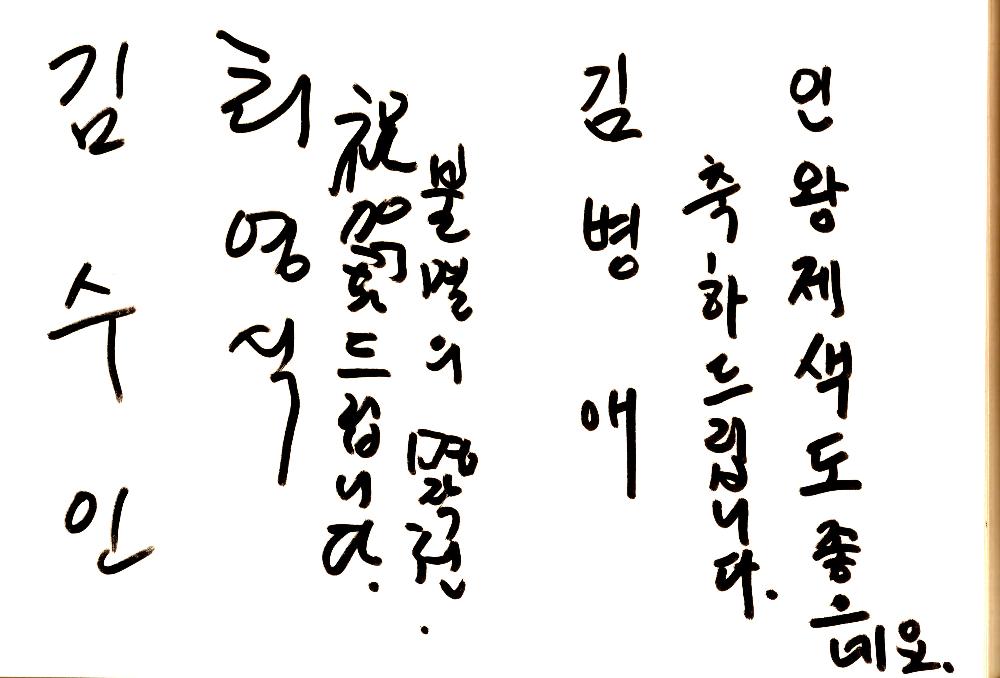 인왕제색도 좋으네요.
축하드립니다.
김병애
불멸의 명과현.
祝賀드립니다.
최영식
김수인